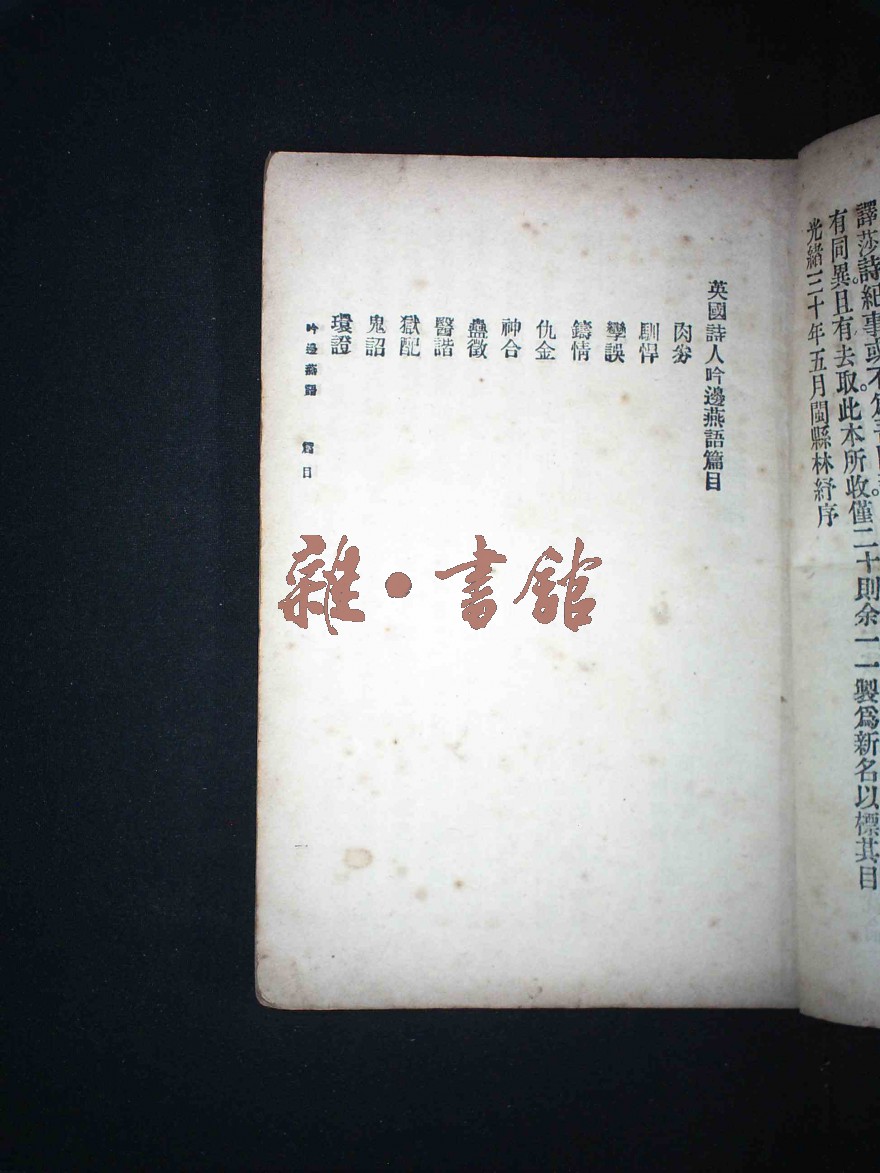 譯莎詩紀事或不
有同異且有去取。此本所收僅二十則余一一製爲新名以標其目
光緒三十年五月閩縣林紓序
英國詩人吟邊燕語篇目
肉劵
馴悍
孿誤
鑄情
仇金
神合
蠱徵
醫諧
獄配
鬼詔
環證
吟邊燕語 篇目
雜·書館